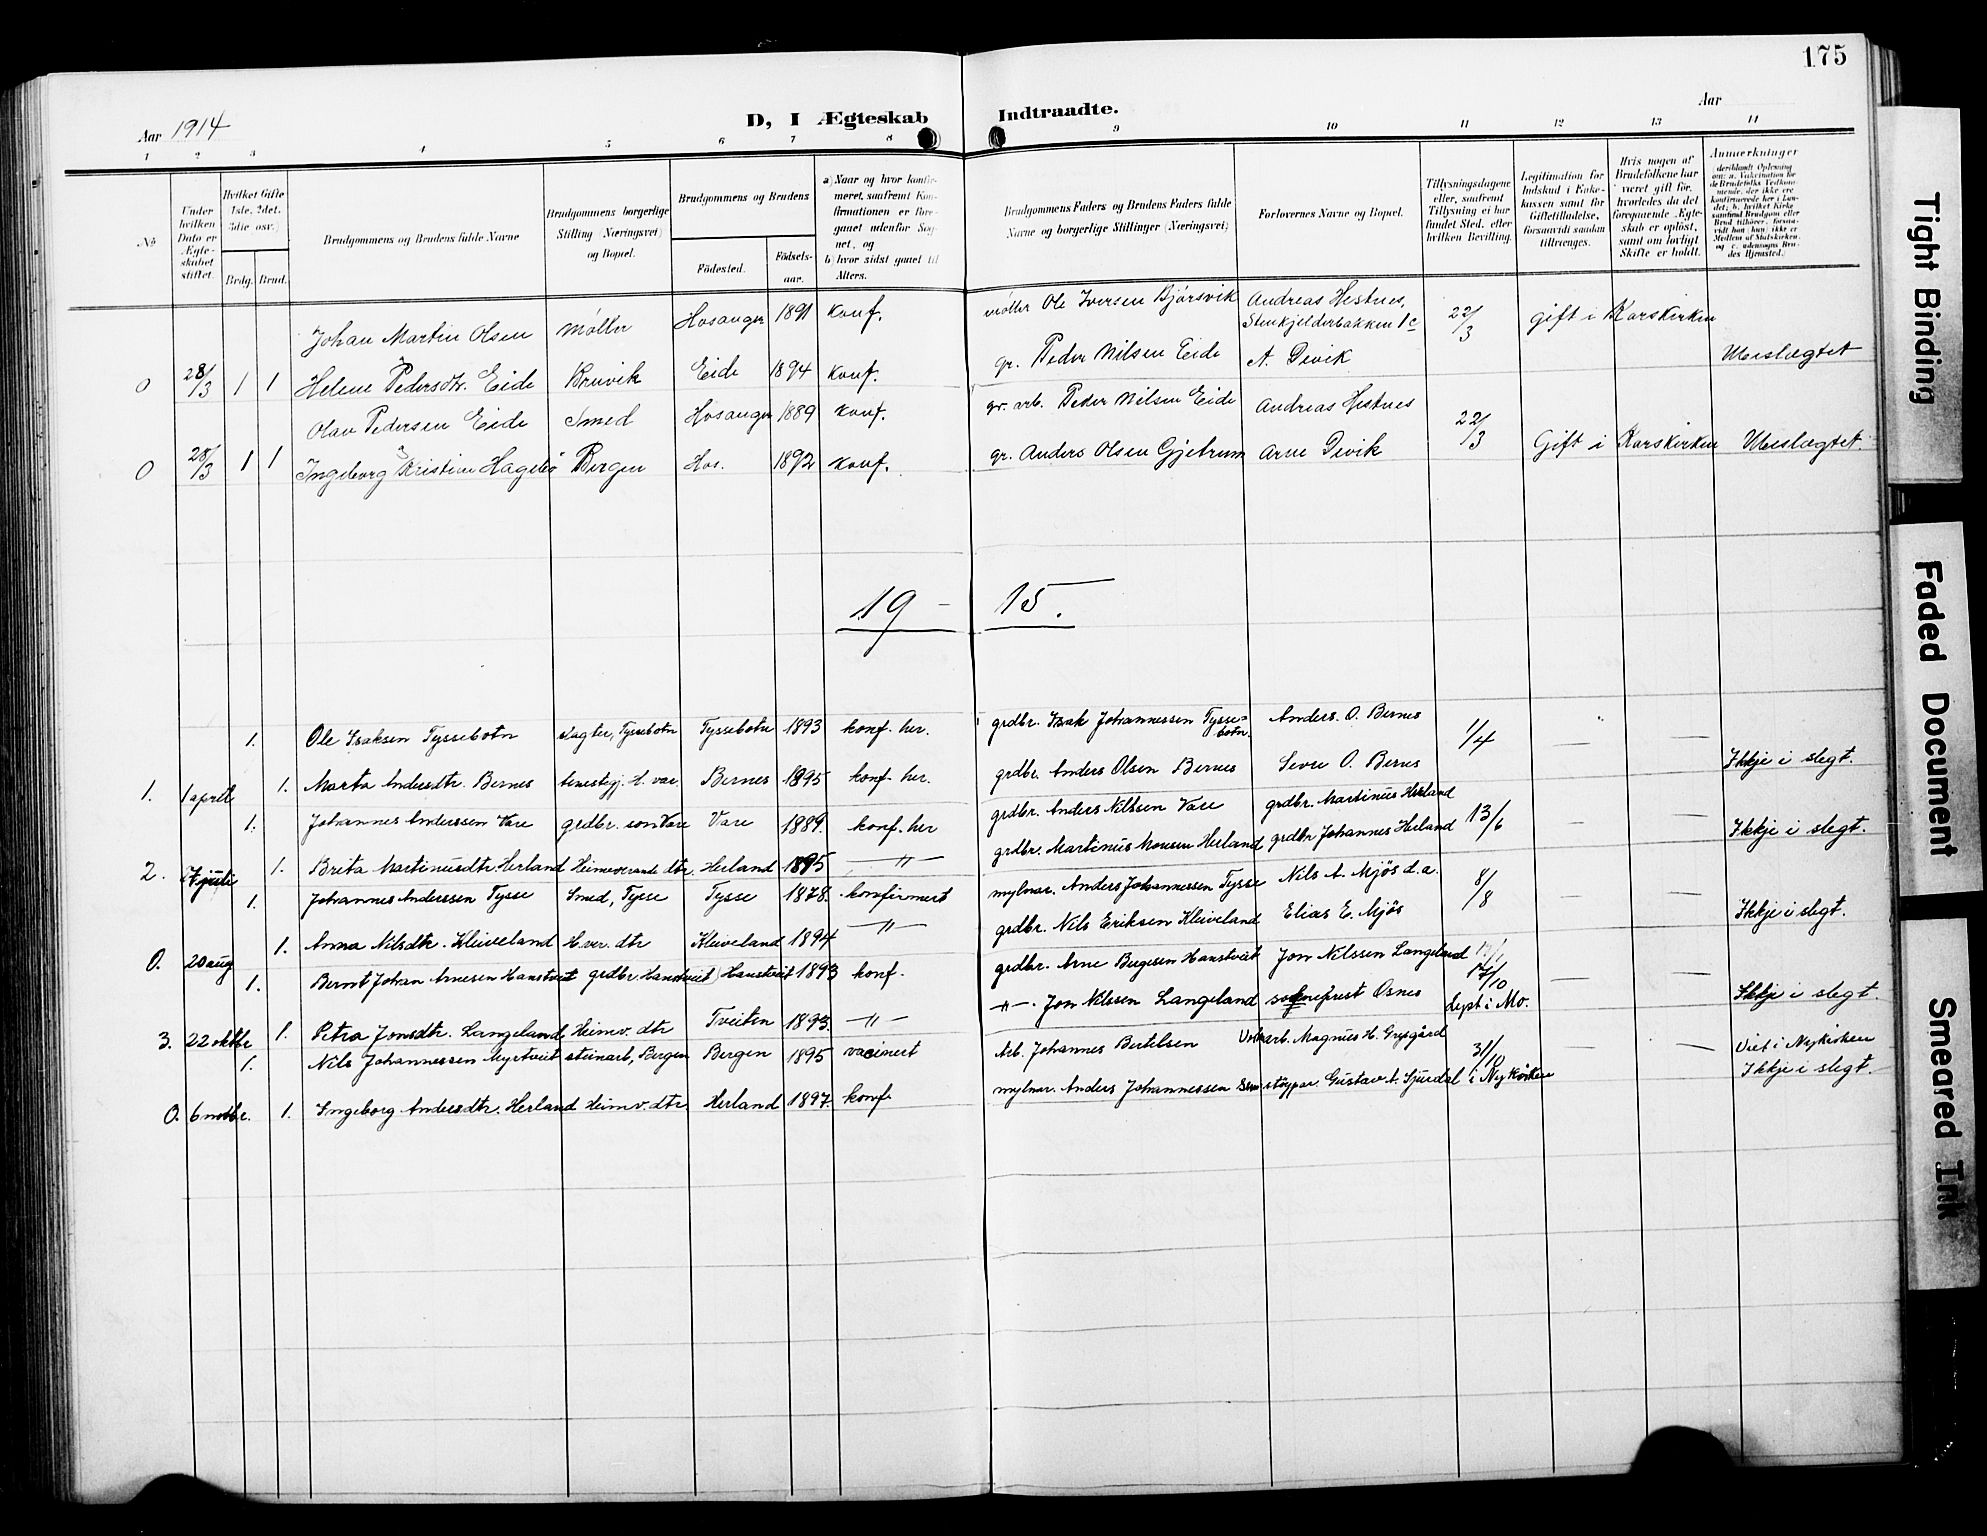 175
Aar 1914
D, I Ægteskab Indtraadte.
Aar
1 2 3 4 5 6 7 8 9 10 11 12 13 14
No
Under hvilken Dato er Ægteskabet stiftet.
Hvilket Gifte 1ste, 2det, 3die osv.)
Brdg. Brud.
Brudgommens og Brudens fulde Navne
Brudgommens borgerlige Stilling (Næringsvei) og Bopæl.
Brudgommens og Brudens
Födested.
Födselsaar.
a) Naar og hvor konfirmeret, saafremt Konfirmationen er foregaaet udenfor Sognet, og
b) hvor sidst gaaet til Alters.
Brudgommens Faders og Brudens Faders fulde Navne og borgerlige Stillinger (Næringsvei)
Forlovernes Navne og Bopæl.
Tillysningsdagene eller, saafremt Tillysning ei har fundet Sted, efter hvilken Bevilling.
Legitimation for Indskud i Enkekassen samt for Giftetilladelse, forsaavidt saadan tiltrænges.
Hvis nogen af Brudefolkene har været gift før, hvorledes da det foregaaende Ægteskab er oplöst, samt om lovligt Skifte er holdt.
Anmærkninger
Johan Martin Olsen Møller Hosanger 1891 konf. møller Ole Iversen Bjørsvik Andreas Hestnes, Stenkjelderbakken 1c 22/3 gift i Korskirken
0 28/3 1 1 Helene Pedersdtr. Eide Bruvik Eide 1894 konf. gr. Peder Nilsen Eide A. Devik Ubeslægtet
Olav Pedersen Eide Smed Hosanger 1889 konf. gr. arb. Peder Nilsen Eide Andreas Hestnes 22/3 Gift i Korskirken Ubeslægtet.
0 28/3 1 1 Ingeborg Kristine Hagelsø Bergen Hos. 1892 konf. gr. Anders Olsen Gjetrum Arne Devik
19 - 15.
1. Ole Isaksen Tyssebotn Tyssebotn Tyssebotn 1893 konf. her. grdbr. Isak Johannessen Tyssebotn. Anders. O. Bernes 1/4 — —
1. 1 april 1. Marta Andersdtr. Bernes H. var. Bernes 1895 konf. her. grdbr. Anders Olsen Bernes Sevre O. Bernes Ikkje i slegt.
1. Johannes Anderssen Vare grdbr. son Vare Vare 1889. konf. her grdbr. Anders Nilssen Vare grdbr. Martinus Herland 13/6 — —
2. juli 1. Brita Martinusdtr. Herland Heimeverande dtr. Herland 1895 —"— grdbr. Martinus Monsen Herland grdbr Johannes Herland Ikkje i slegt.
1. Johannes Anderssen Tysse Smed, Tysse Tysse 1878. konfirmert mylnar. Anders Johannessen Tysse Nils A. Mjøs d.a. 8/8 — —
0. 20 aug 1. Anna Nilsdtr. Kleiveland H.ver. dtr Kleiveland 1894 —"— grdbr. Nils Eriksen Kleiveland Elias E. Mjös Ikkje i slegt.
1. Bernt Johan Arnesen Hanstveit grdbr. Hanstveit Hanstveit 1893 konf. grdbr. Arne Bergesen Hanstveit Jon Nilssen Langeland 17/10 — —
3. 22 oktbr 1. Petra Jonsdtr. Langeland Heimv. dtr Tveiten 1893. —"— —"— Jon Nilssen Langeland sokneprest Osnes lyst i Mo. Ikkje i slegt.
1. Nils Johannessen Myrtveit steinarb, Bergen Bergen 1895 vacinert Arb. Johannes Bertelsen Magnus H. Grysgård 31/10 — Viet i Nykirken
0. 6 novbr. 1. Ingeborg Andersdtr. Herland Heimv. dtr Herland 1897. konf. mylnar. Anders Johannessen støypar Gustav A. Sjurdal i Nykirken Ikkje i slegt.
Tight Binding
Faded Document
Smeared Ink